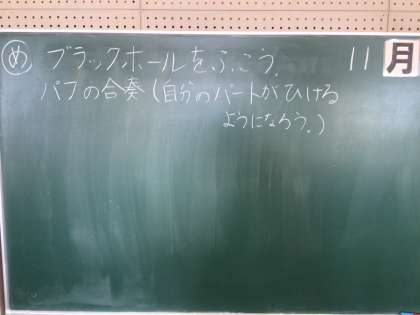 め ブラックホールをふこう。
パフの合奏(自分のパートがひける
ようになろう。)
11月